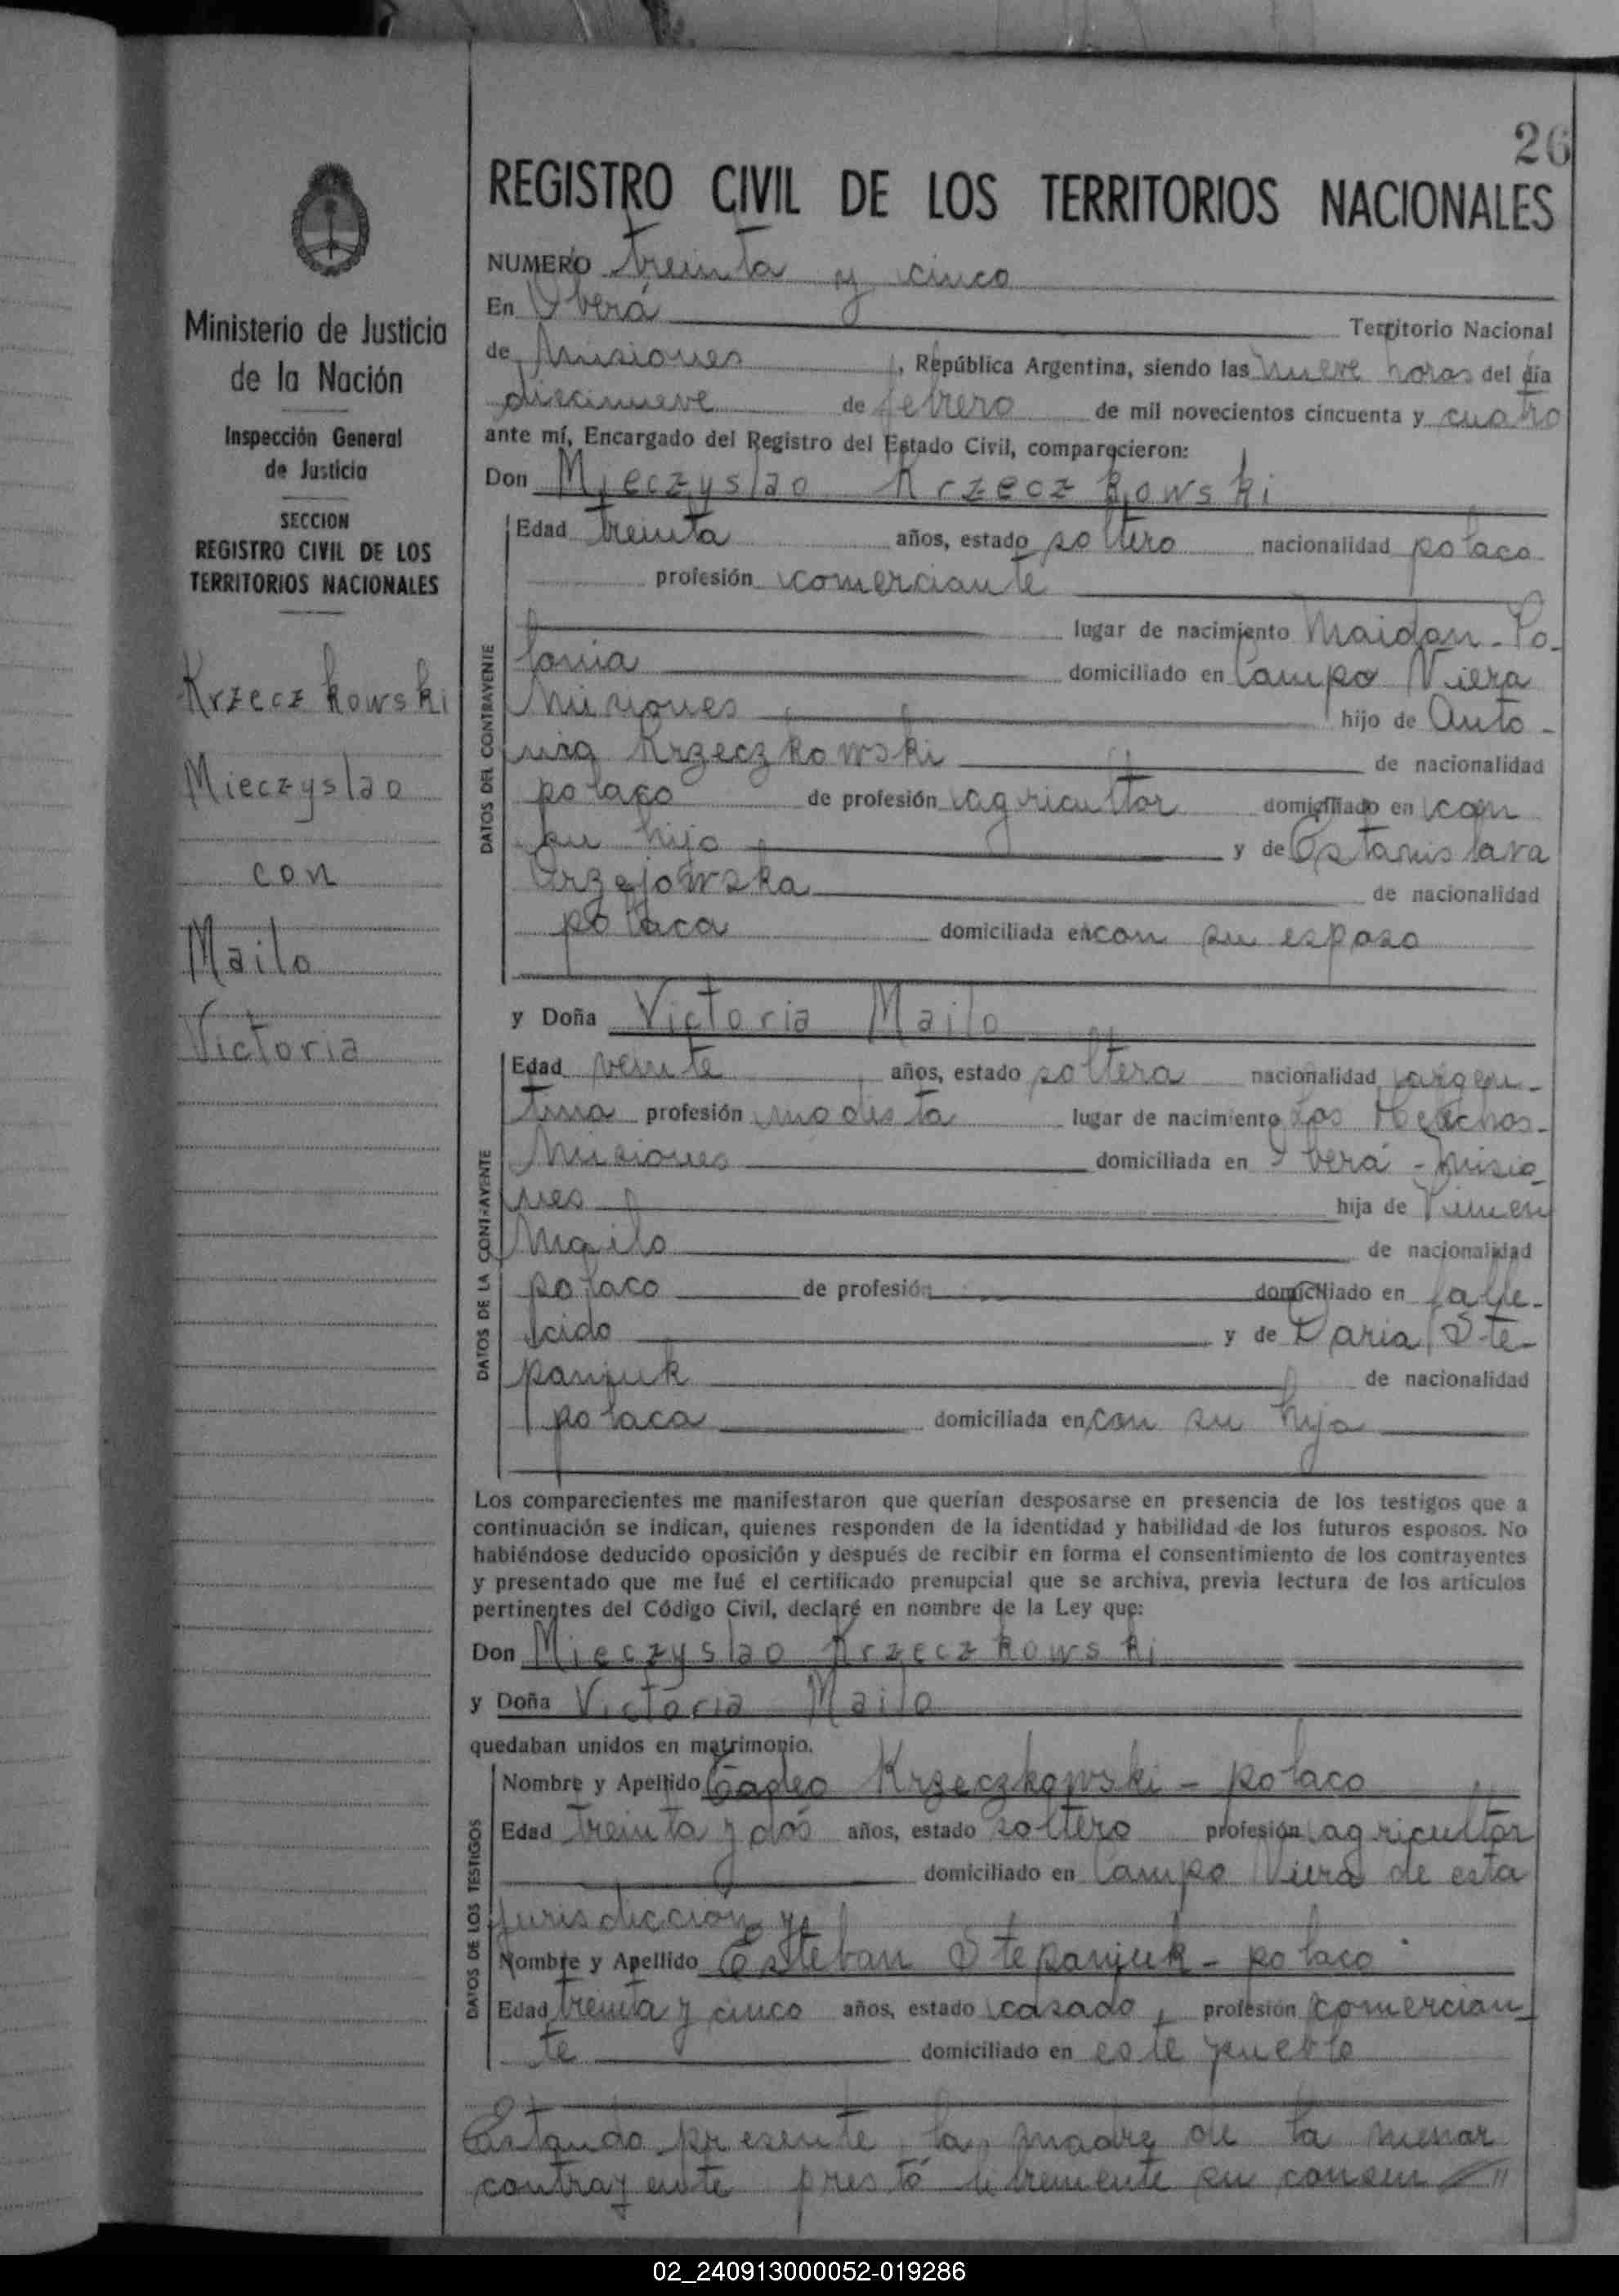 26
REGISTRO CIVIL DE LOS TERRITORIOS NACIONALES
Ministerio de Justicia
de la Nación
Inspección General
de Justicia
SECCION
REGISTRO CIVIL DE LOS
TERRITORIOS NACIONALES
Krzeczkowski
Mieczyslao
con
Mailo
Victoria
NUMERO treinta y cinco
En Oberá Territorio Nacional
de Misiones, República Argentina, siendo las nueve horas del día
diecinueve de febrero de mil novecientos cincuenta y cuatro
ante mí, Encargado del Registro del Estado Civil, comparecieron:
Don Mieczyslao Krzeczkowski
DATOS DEL CONTRAYENTE
Edad treinta años, estado soltero nacionalidad polaca
profesión comerciante
lugar de nacimiento Maidan-Po-
lonia domiciliado en Campo Viera
Misiones hijo de Anto-
nio Krzeczkowski de nacionalidad
polaco de profesión agricultor domiciliado en con
su hijo y de Estanislava
de nacionalidad
polaca domiciliada en con su esposo
y Doña Victoria Mailo
DATOS DE LA CONTRAYENTE
Edad veinte años, estado soltera nacionalidad argen-
tina profesión modista lugar de nacimiento Los Helechos-
Misiones domiciliada en Oberá-Misio-
nes hija de Pimen
Mailo de nacionalidad
polaco de profesión domiciliado en falle-
cido y de Daria Ste-
panjuk de nacionalidad
polaca domiciliada en con su hija
Los comparecientes me manifestaron que querían desposarse en presencia de los testigos que a
continuación se indican, quienes responden de la identidad y habilidad de los futuros esposos. No
habiéndose deducido oposición y después de recibir en forma el consentimiento de los contrayentes
y presentado que me fué el certificado prenupcial que se archiva, previa lectura de los artículos
pertinentes del Código Civil, declaré en nombre de la Ley que:
Don Mieczyslao Krzeczkowski
y Doña Victoria Mailo
quedaban unidos en matrimonio.
DATOS DE LOS TESTIGOS
Nombre y Apellido Tadeo Krzeczkowski - polaco
Edad treinta y dos años, estado soltero profesión agricultor
domiciliado en Campo Viera de esta
jurisdiccion y
Nombre y Apellido Esteban Stepanjuk - polaco
Edad treinta y cinco años, estado casado, profesión comercian-
te domiciliado en este pueblo
Estando presente la madre de la menor
contrayente prestó libremente su consen
02_240913000052-019286